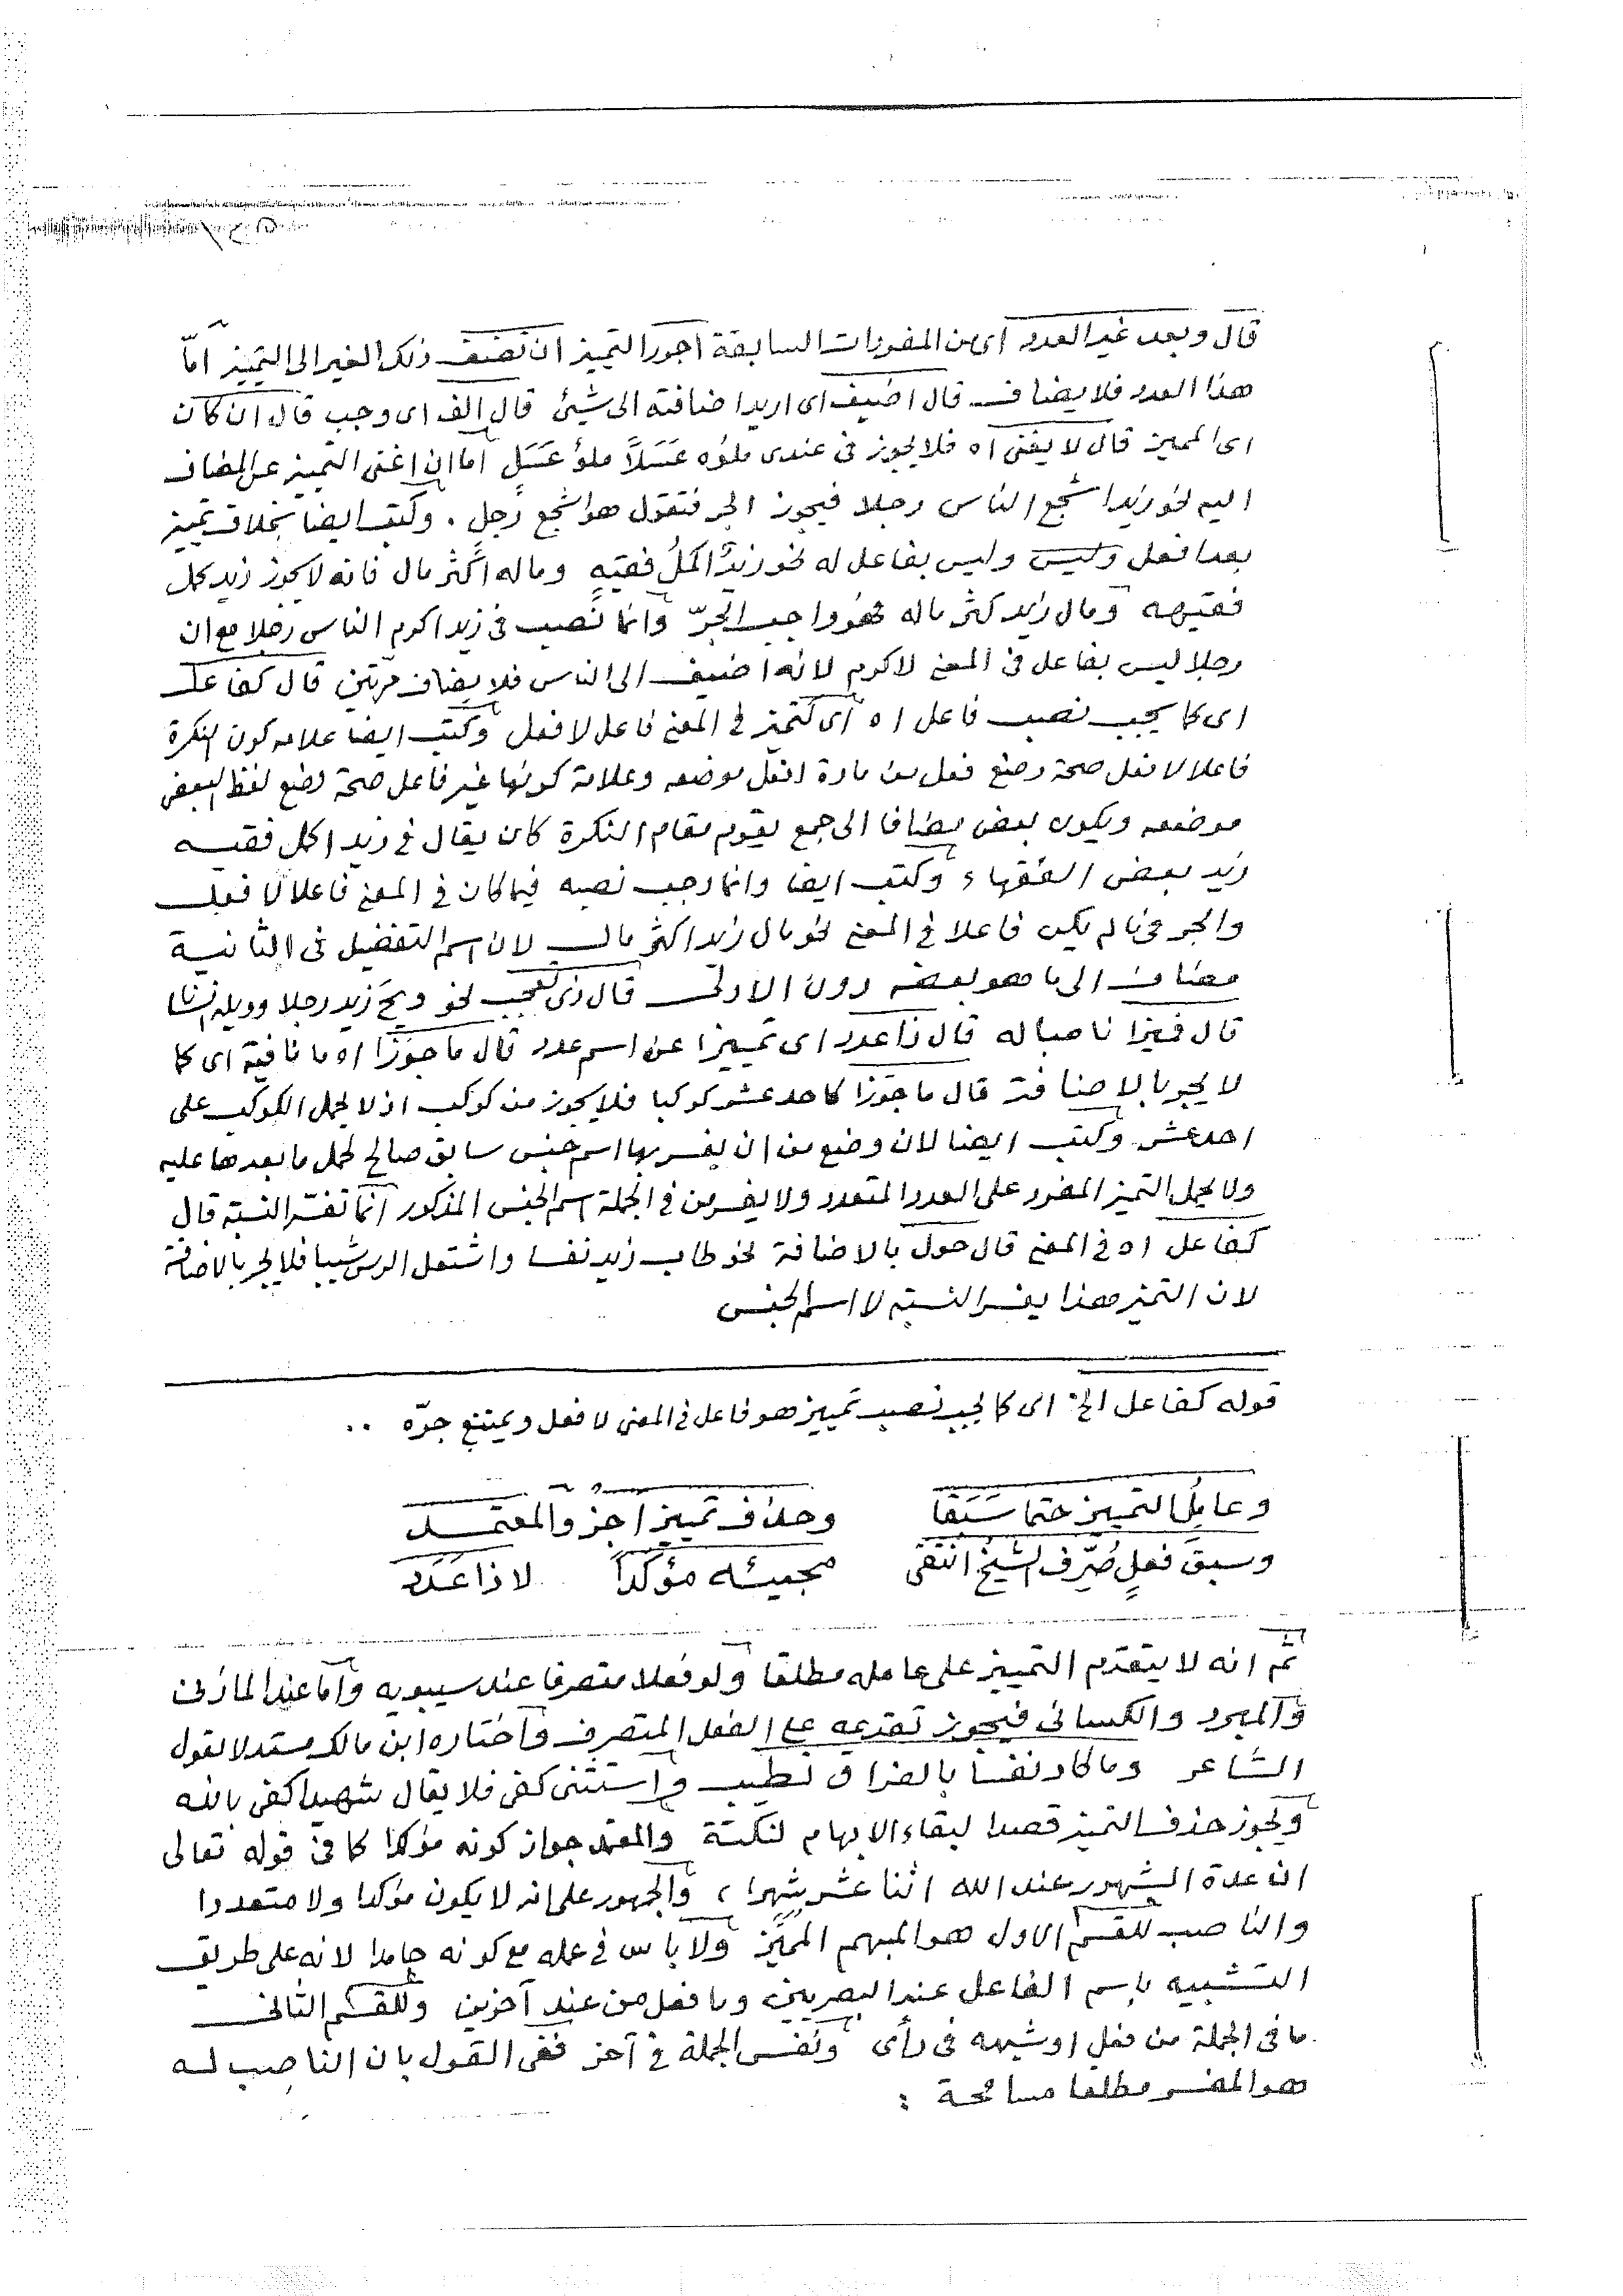 قال وبعد غير العدد اى من المفردات السابقة اجرر التمييز ان تضف ذلك الغير الى التمييز امّا
هذا العدد فلا يضاف قال اضيف اى اريد اضافته الى شيئ قال الف اى وجب قال ان كان
اى المميز قال لا يغنى اه فلا يجوز فى عندى ملؤه عَسَلاً ملؤ عَسَلٍ اما ان اغنى التميز عن المضاف
اليه نحو زيد اشجع الناس رجلا فيجوز الجر فتقول هو اشجع رجل . وكتب ايضا بخلاف تمييز
بعد افعل وليس وليس بفاعل له نحو زيدٌ اكملُ فقيهٍ وماله اكثر مال فانه لا يجوز زيد كمل
فقيهه ومال زيد كثر ماله فهو واجب الجرّ وانما نصب فى زيد اكرم الناس رجلا مع ان
رجلا ليس بفاعل فى المعنى لاكرم لانه اضيف الى الناس فلا يضاف مرتين قال كفاعل
اى كما يجب نصب فاعل اه اى كتميز فى المعنى فاعل لافعل وكتب ايضا علامه كون النكرة
فاعلا لافعل صحة وضع فعل من مادة افعل موضعه وعلامة كونها غير فاعل صحة وضع لفظ البعض
موضعه ويكون بعض مضافا الى جمع يقوم مقام النكرة كان يقال فى زيد اكمل فقيه
زيد بعض الفقهاء وكتب ايضا وانما وجب نصبه فيما كان فى المعنى فاعلا لافعل
والجر فى ما لم يكن فاعلا فى المعنى نحو مال زيد اكثر مال لان اسم التفضيل فى الثانية
مضاف الى ما هو بعضه دون الاولى قال ذى تعجب نحو ويحَ زيد رجلا وويله انسانا
قال فميزا ناصبا له قال ذا عدد اى تمييزا عن اسم عدد قال ما جوزا اه ما نافية اى كما
لا يجر بالاضافة قال ما جوّزا كاحد عشر كوكبا فلا يجوز من كوكب اذ لا يحمل الكوكب على
احد عشر وكتب ايضا لان وضع من ان يفسر بها اسم جنس سابق صالح لحمل ما بعدها عليه
ولا يحمل التميز المفرد على العدد المتعدد ولا يفسر من فى الجملة اسم الجنس المذكور انما تفسّر النسبة قال
كفاعل اه فى المعنى قال حول بالاضافة نحو طاب زيد نفسا واشتعل الرأس شيبا فلا يجر بالاضافة
لان التميز هذا يفسر النسبة لا اسم الجنس
قوله كفاعل الخ اى كما يجب نصب تمييز هو فاعل فى المعنى لافعل ويمتنع جرّه ..
وعاملُ التمييز حتما سَبَقا وحذف تمييز اجز والمعتمد
وسبقَ فعلٍ صُرّف الشيخُ انتقى مجيئه مؤكداً لا ذا عَدَد
ثم انه لا يتقدم التمييز على عامله مطلقا ولو فعلا متصرفا عند سيبويه واما عند المازنى
والمبرد والكسائى فيجوز تقديمه على الفعل المتصرف واختاره ابن مالك مستدلا بقول
الشاعر وما كاد نفسا بالفراق تطيب واستثنى كفى فلا يقال شهيدا كفى بالله
ويجوز حذف التميز قصدا لبقاء الابهام لنكتة والمعتمد جواز كونه مؤكدا كما فى قوله تعالى
ان عدة الشهور عند الله اثنا عشر شهرا ، والجمهور على انه لا يكون مؤكدا ولا متعددا
والناصب للقسم الاول هو المبهم المميَّز ولا باس فى عمله مع كونه جامدا لانه على طريق
التشبيه باسم الفاعل عند البصريين وبافعل من عند آخرين وللقسم الثانى
ما فى الجملة من فعل او شبهه فى رأى ونفس الجملة فى آخر ففى القول بان الناصب له
هو المفسر مطلقا مسامحة :